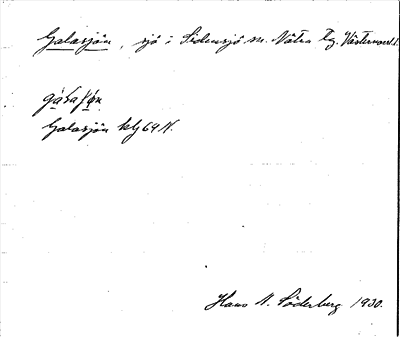 Galasjön, sjö i Sidensjö sn. Nätra tg. Västernorrl. l.
gálaſön
Galasjön klj 69 N.
Hans N. Söderberg 1930.